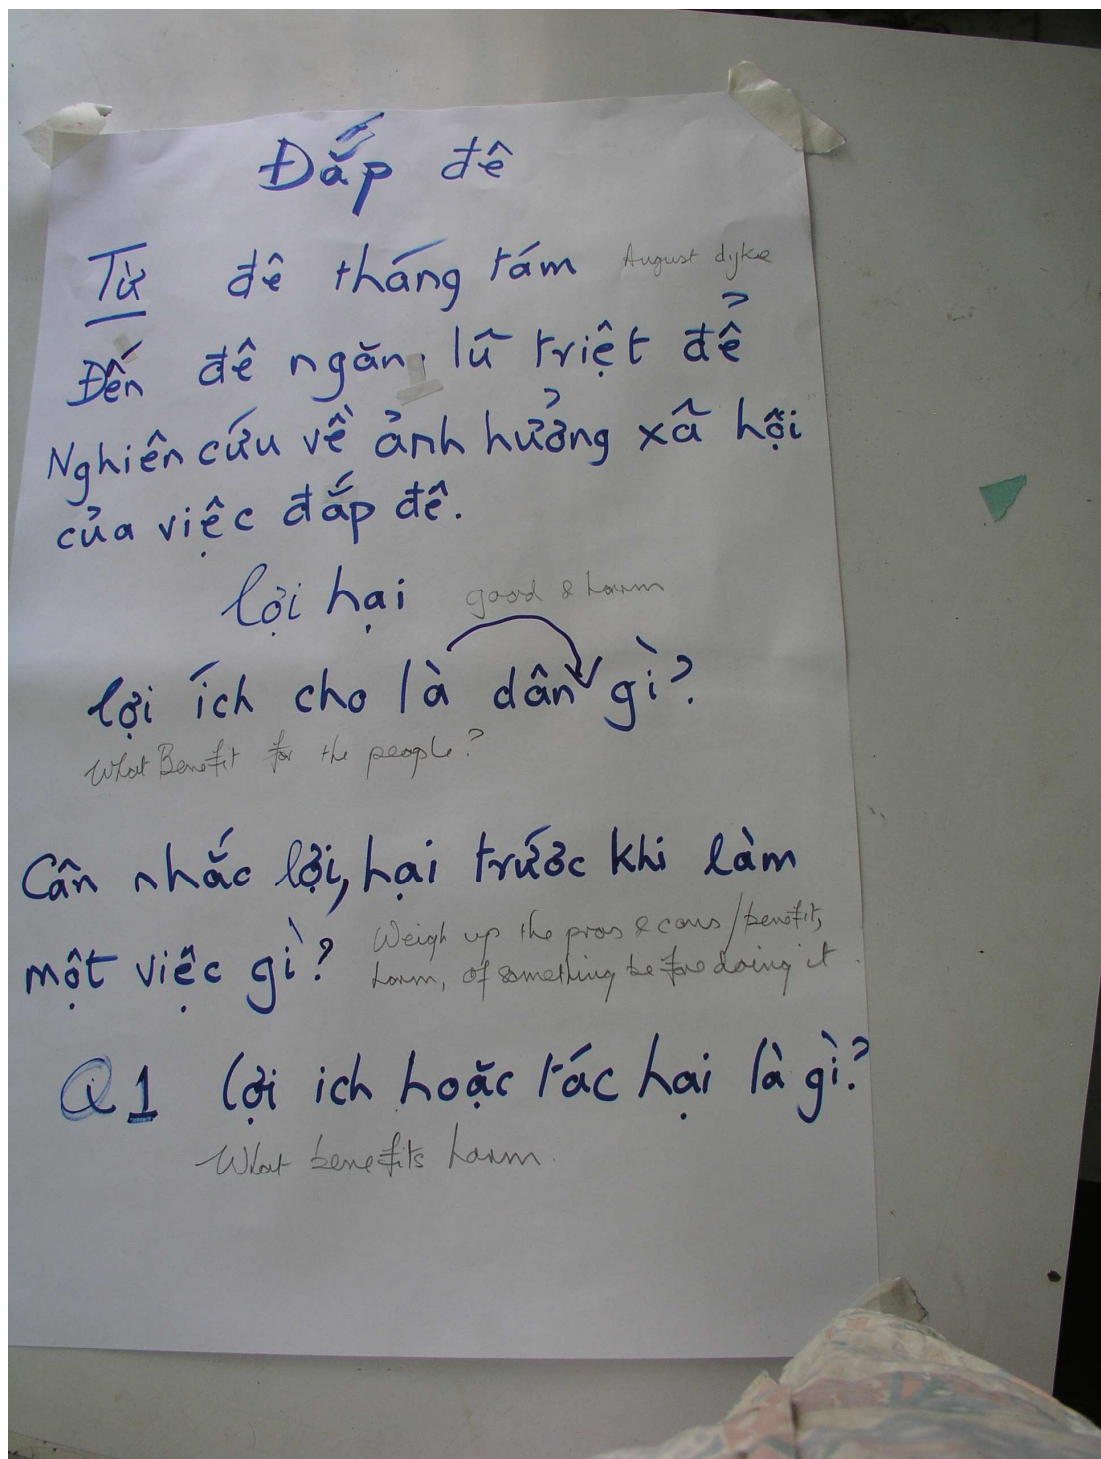 Đắp đê
Từ đê tháng tám August dyke
Đến đê ngăn lũ triệt để
Nghiên cứu về ảnh hưởng xã hội
của việc đắp đê.
lợi hại good & harm
lợi ích cho là dân gì?
What Benefit for the people?
Cân nhắc lợi, hại trước khi làm
một việc gì? Weigh up the pros & cons/benefit,
harm, of something before doing it.
Q1 lợi ich hoặc tác hại là gì?
What benefits harm.